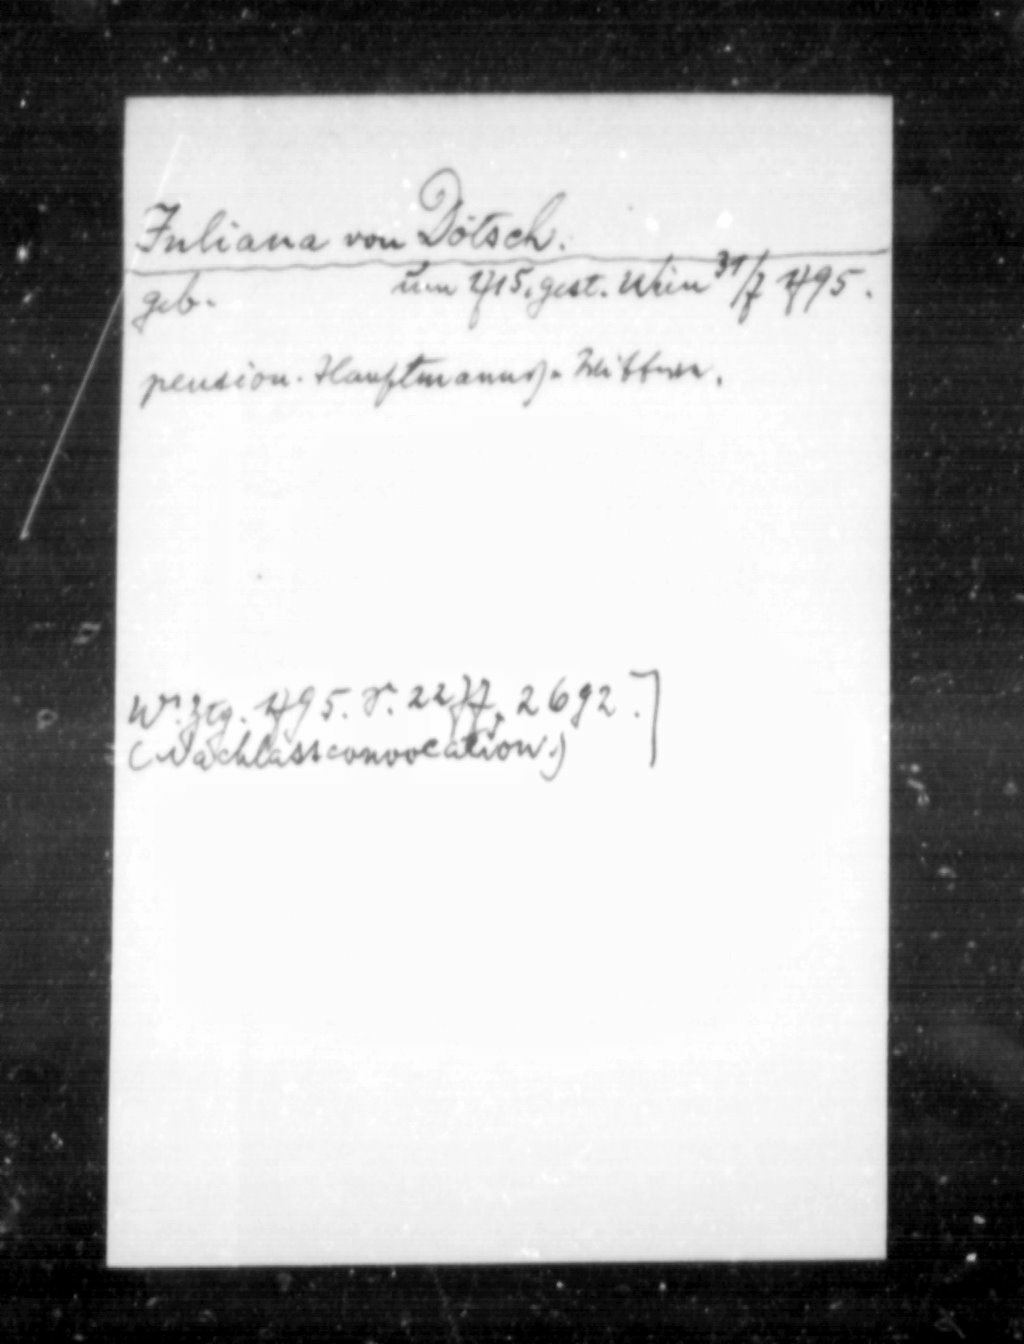 Juliana von Dötsch.
geb. um 1715, gest. Wien 31/7 1795.
pension. Hauptmanns-Wittwe.
Wr. Ztg. 1795. S. 2277, 2692.]
(Nachlassconvocation.)